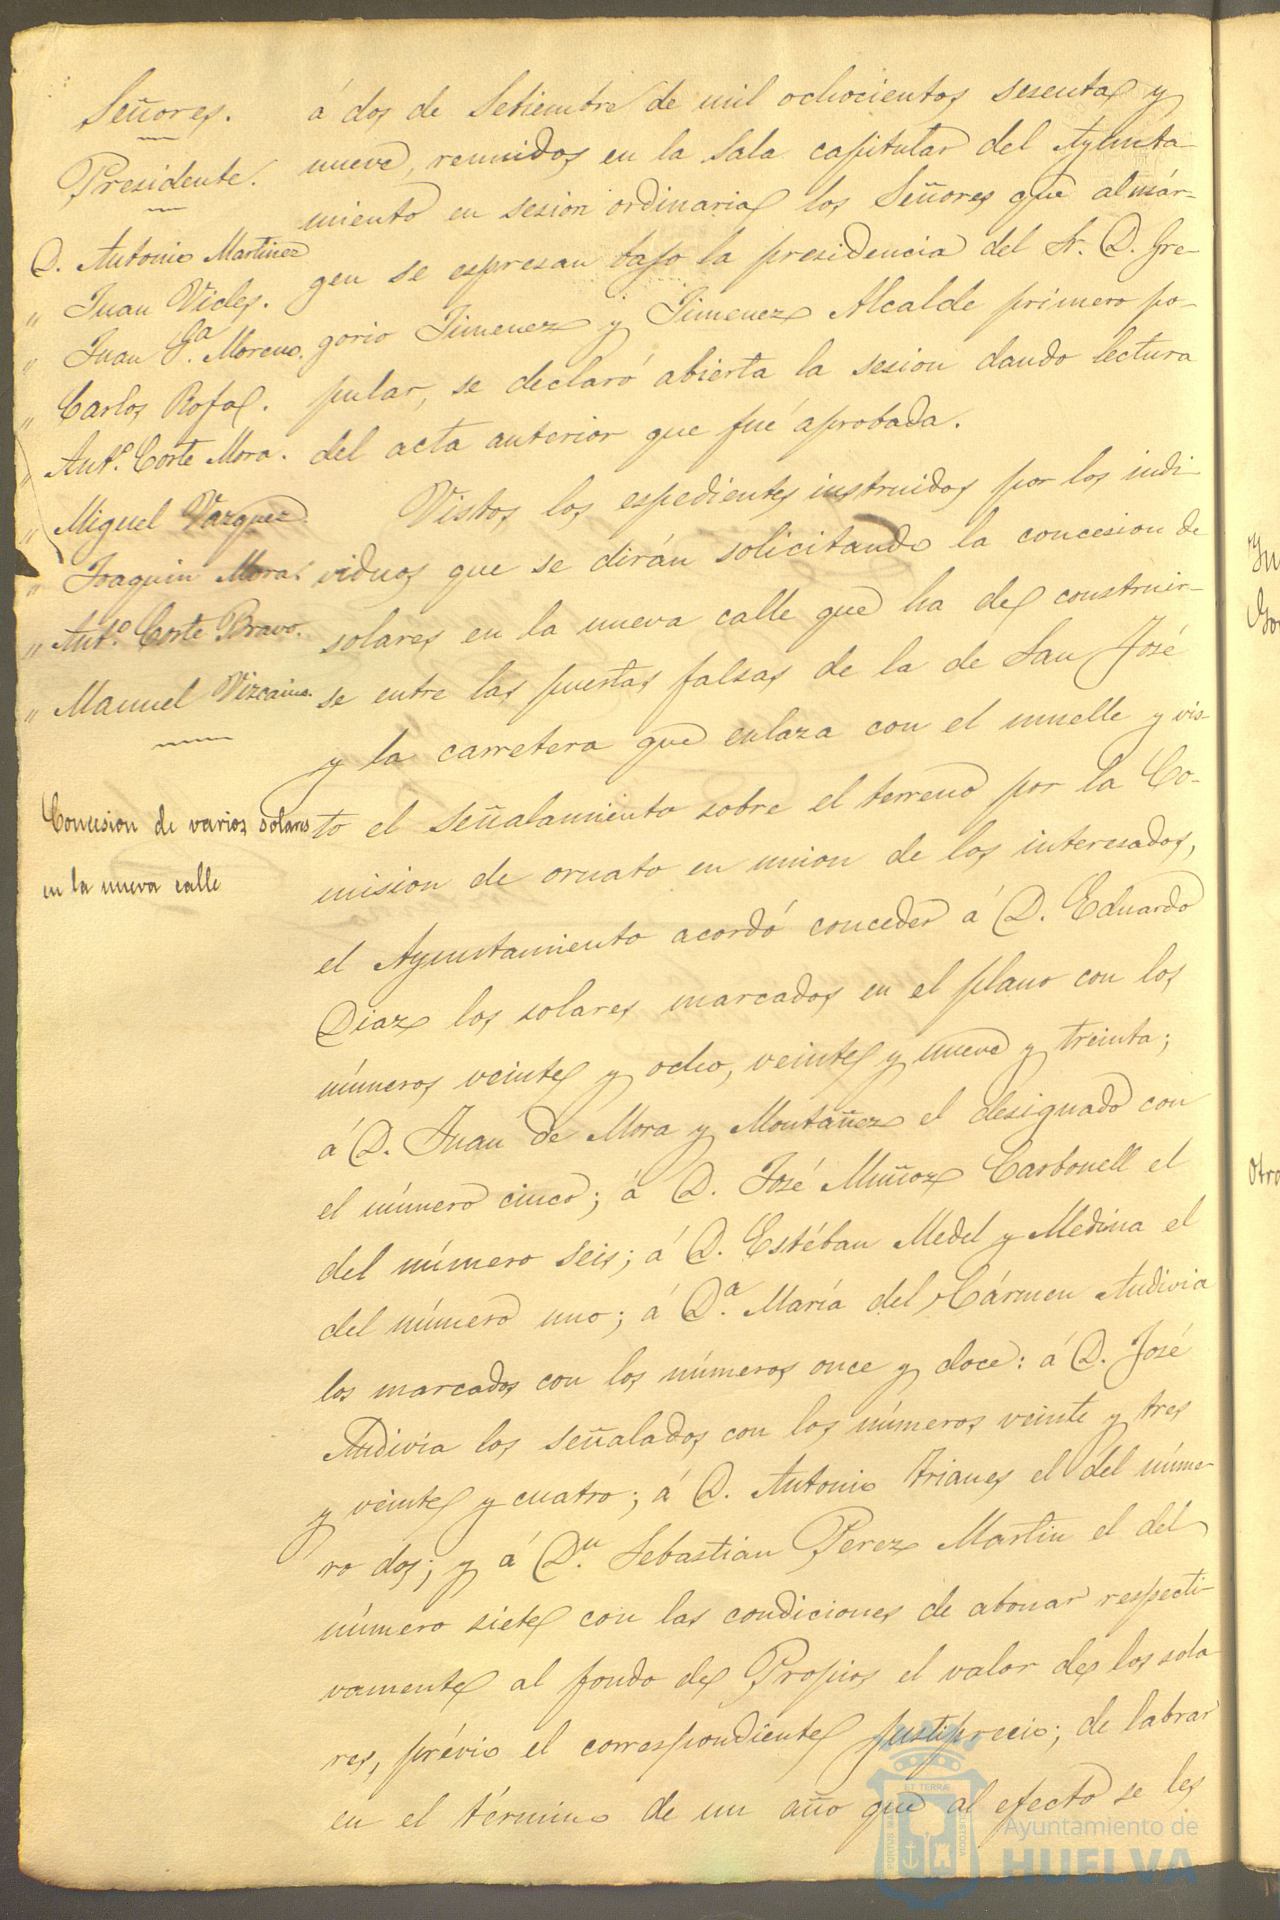 Señores.
Presidente.
D. Antonio Martinez
" Juan Vides.
" Juan Ga. Moreno.
" Carlos Rofa.
" Anto. Corte Mora.
" Miguel Vazquez
" Joaquin Mora.
" Anto. Corte Bravo.
" Manuel Vizcaino.
Concesion de varios solares
en la nueva calle
á dos de Setiembre de mil ochocientos sesenta y
nueve, reunidos en la Sala capitular del Ayunta
miento en sesion ordinaria los Señores que al már-
gen se espresan bajo la presidencia del Sr. D. Gre-
gorio Jimenez y Jimenez Alcalde primero po-
pular, se declaró abierta la sesion dando lectura
del acta anterior que fué aprobada.
Vistos los espedientes instruidos por los indi-
viduos que se dirán solicitando la concesion de
solares en la nueva calle que ha de construir-
se entre las puertas falsas de la de San José
y la carretera que enlaza con el muelle y vis-
to el señalamiento sobre el terreno por la Co-
mision de ornato en union de los interesados,
el Ayuntamiento acordó conceder á D. Eduardo
Diaz los solares marcados en el plano con los
números veinte y ocho, veinte y nueve y treinta;
á D. Juan de Mora y Montañez el designado con
el número cinco; á D. José Muñoz Carbonell el
del número seis; á D. Estéban Medel y Medina el
del número uno; á Da. María del Cármen Andivia
los marcados con los números once y doce: á D. José
Andivia los señalados con los números veinte y tres
y veinte y cuatro; á D. Antonio Trianes el del núme-
ro dos; y á Dn. Sebastian Perez Martin el del
número siete con las condiciones de abonar respecti-
vamente al fondo de Propios el valor de los sola
res, prévio el correspondiente justiprecio; de labrar
en el término de un año que al efecto se les
Otro
Ayuntamiento de
HUELVA